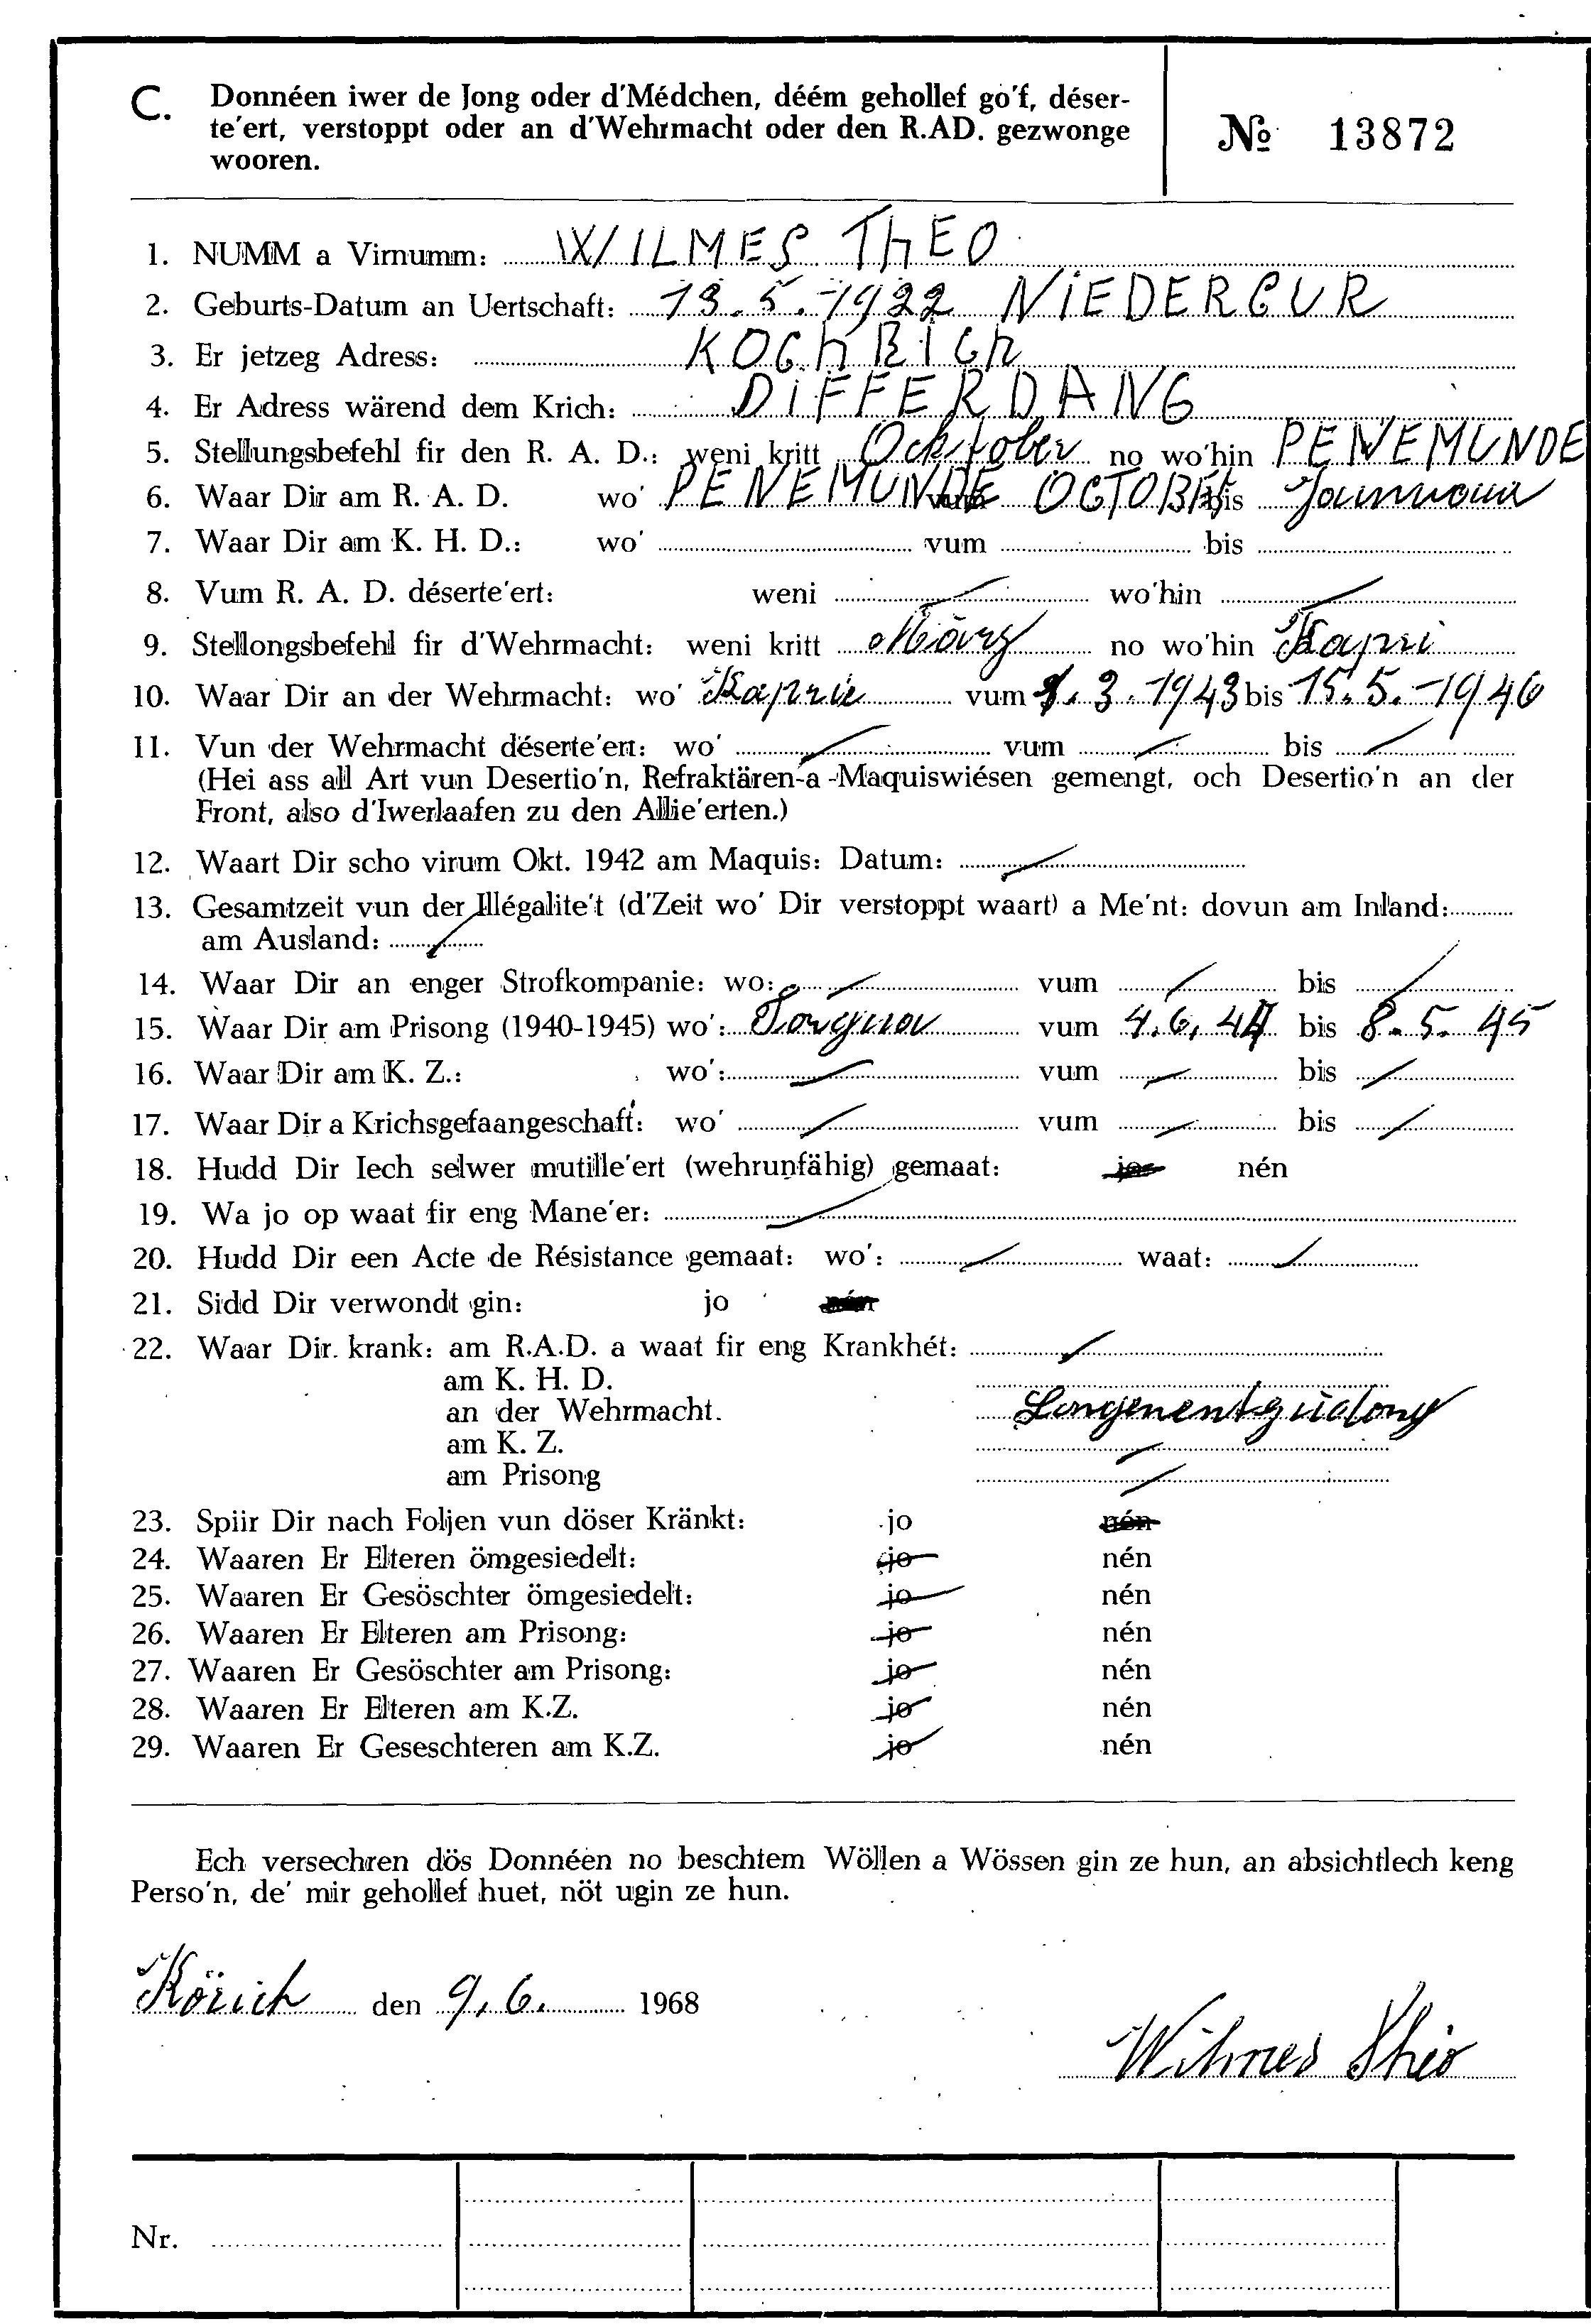 C. Donnéen iwer de Jong oder d'Médchen, déém gehollef go'f, déser-
te'ert, verstoppt oder an d'Wehrmacht oder den R.AD. gezwonge
wooren.
№ 13872
1. NUMM a Virnumm: WILMES THEO
2. Geburts-Datum an Uertschaft: 13.5.-1922 NIEDERCUR
3. Er jetzeg Adress:
4. Er Adress wärend dem Krich: DIFFERDANG
5. Stellungsbefehl fir den R. A. D.: weni kritt Ocktober no wo'hin PENEMUNDE
6. Waar Dir am R. A. D. wo' PENEMUNDE vum OCTOBER bis
7. Waar Dir am K. H. D.: wo' vum bis
8. Vum R. A. D. déserte'ert: weni wo'hin
9. Stellongsbefehl fir d'Wehrmacht: weni kritt März no wo'hin Kapri
10. Waar Dir an der Wehrmacht: wo' Kaprie vum 1.3.-1943 bis 15.5.-1946
11. Vun der Wehrmacht déserte'ert: wo' vum bis
(Hei ass all Art vun Desertio'n, Refraktären-a-Maquiswiésen gemengt, och Desertio'n an der
Front, also d'Iwerlaafen zu den Allie'erten.)
12. Waart Dir scho virum Okt. 1942 am Maquis: Datum:
13. Gesamtzeit vun der Illégalite't (d'Zeit wo' Dir verstoppt waart) a Me'nt: dovun am Inland:
am Ausland:
14. Waar Dir an enger Strofkompanie: wo: vum bis
15. Waar Dir am Prisong (1940-1945) wo': vum 4.6.44 bis 8.5.45
16. Waar Dir am K. Z.: wo': vum bis
17. Waar Dir a Krichsgefaangeschaft: wo' vum bis
18. Hudd Dir Iech selwer mutille'ert (wehrunfähig) gemaat: jo nén
19. Wa jo op waat fir eng Mane'er:
20. Hudd Dir een Acte de Résistance gemaat: wo': waat:
21. Sidd Dir verwondt gin: jo nén
22. Waar Dir krank: am R.A.D. a waat fir eng Krankhét:
am K. H. D.
an der Wehrmacht. Lungenentzüdong
am K. Z.
am Prisong
23. Spiir Dir nach Foljen vun döser Kränkt: jo nén
24. Waaren Er Elteren ömgesiedelt: jo nén
25. Waaren Er Gesöschter ömgesiedelt: jo nén
26. Waaren Er Elteren am Prisong: jo nén
27. Waaren Er Gesöschter am Prisong: jo nén
28. Waaren Er Elteren am K.Z. jo nén
29. Waaren Er Geseschteren am K.Z. jo nén
Ech versechren dös Donnéen no beschtem Wöllen a Wössen gin ze hun, an absichtlech keng
Perso'n, de' mir gehollef huet, nöt ugin ze hun.
Körich den 9.6. 1968
Wilmes Théo
Nr.